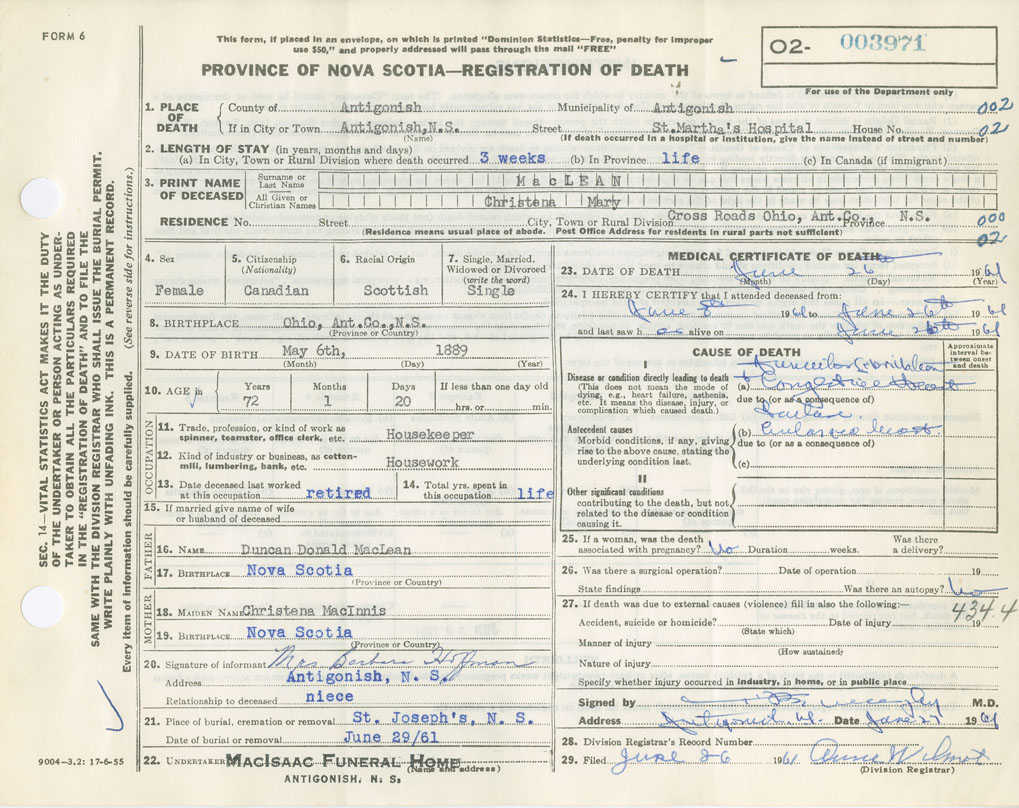 FORM 6
This form, if placed in an envelope, on which is printed "Dominion Statistics—Free, penalty for improper
use $50," and properly addressed will pass through the mail "FREE"
PROVINCE OF NOVA SCOTIA—REGISTRATION OF DEATH
O2- 003971
For use of the Department only
1. PLACE OF DEATH
County of Antigonish Municipality of Antigonish 002
If in City or Town Antigonish, N.S. Street St.Martha's Hospital House No. 02
(Name) (If death occurred in a hospital or institution, give the name instead of street and number)
2. LENGTH OF STAY (in years, months and days)
(a) In City, Town or Rural Division where death occurred 3 weeks (b) In Province life (c) In Canada (if immigrant)
3. PRINT NAME OF DECEASED
Surname or Last Name MacLEAN
All Given or Christian Names Christena Mary
RESIDENCE No. Street City, Town or Rural Division Cross Roads Ohio, Ant.Co., N.S. Province 000
(Residence means usual place of abode. Post Office Address for residents in rural parts not sufficient) 02
4. Sex Female
5. Citizenship (Nationality) Canadian
6. Racial Origin Scottish
7. Single, Married, Widowed or Divorced (write the word) Single
8. BIRTHPLACE Ohio, Ant.Co., N.S.
(Province or Country)
9. DATE OF BIRTH May 6th, 1889
(Month) (Day) (Year)
10. AGE in Years 72 Months 1 Days 20 If less than one day old hrs. or min.
OCCUPATION
11. Trade, profession, or kind of work as spinner, teamster, office clerk, etc. Housekeeper
12. Kind of industry or business, as cotton-mill, lumbering, bank, etc. Housework
13. Date deceased last worked at this occupation retired
14. Total yrs. spent in this occupation life
15. If married give name of wife or husband of deceased
FATHER
16. NAME Duncan Donald MacLean
17. BIRTHPLACE Nova Scotia
(Province or Country)
MOTHER
18. MAIDEN NAME Christena MacInnis
19. BIRTHPLACE Nova Scotia
(Province or Country)
20. Signature of informant Mrs Barbara Hofman
Address Antigonish, N. S.
Relationship to deceased niece
21. Place of burial, cremation or removal St. Joseph's, N. S.
Date of burial or removal June 29/61
22. UNDERTAKER MACISAAC FUNERAL HOME
(Name and address)
ANTIGONISH, N. S.
MEDICAL CERTIFICATE OF DEATH
23. DATE OF DEATH June 26 1961
(Month) (Day) (Year)
24. I HEREBY CERTIFY that I attended deceased from:
June 8th 1961 to June 26th 1961
and last saw h er alive on June 26th 1961
CAUSE OF DEATH
Approximate interval between onset and death
I
Disease or condition directly leading to death
(This does not mean the mode of dying, e.g., heart failure, asthenia, etc. It means the disease, injury, or complication which caused death.)
(a) Congestive Heart
due to (or as a consequence of)
Failure.
Antecedent causes
Morbid conditions, if any, giving rise to the above cause, stating the underlying condition last.
(b)
due to (or as a consequence of)
(c)
II
Other significant conditions
contributing to the death, but not related to the disease or condition causing it.
25. If a woman, was the death associated with pregnancy? No Duration weeks. Was there a delivery?
26. Was there a surgical operation? Date of operation 19
State findings Was there an autopsy? No
27. If death was due to external causes (violence) fill in also the following:— 434.4
Accident, suicide or homicide? Date of injury 19
(State which)
Manner of injury
(How sustained)
Nature of injury
Specify whether injury occurred in industry, in home, or in public place
Signed by M.D.
Address Antigonish Date June 27 1961
28. Division Registrar's Record Number
29. Filed June 26 1961
(Division Registrar)
SEC. 14—VITAL STATISTICS ACT MAKES IT THE DUTY
OF THE UNDERTAKER OR PERSON ACTING AS UNDER-
TAKER TO OBTAIN ALL THE PARTICULARS REQUIRED
IN THE "REGISTRATION OF DEATH" AND TO FILE THE
SAME WITH THE DIVISION REGISTRAR WHO SHALL ISSUE THE BURIAL PERMIT.
WRITE PLAINLY WITH UNFADING INK. THIS IS A PERMANENT RECORD.
Every item of information should be carefully supplied. (See reverse side for instructions.)
9004-3.2: 17-6-55